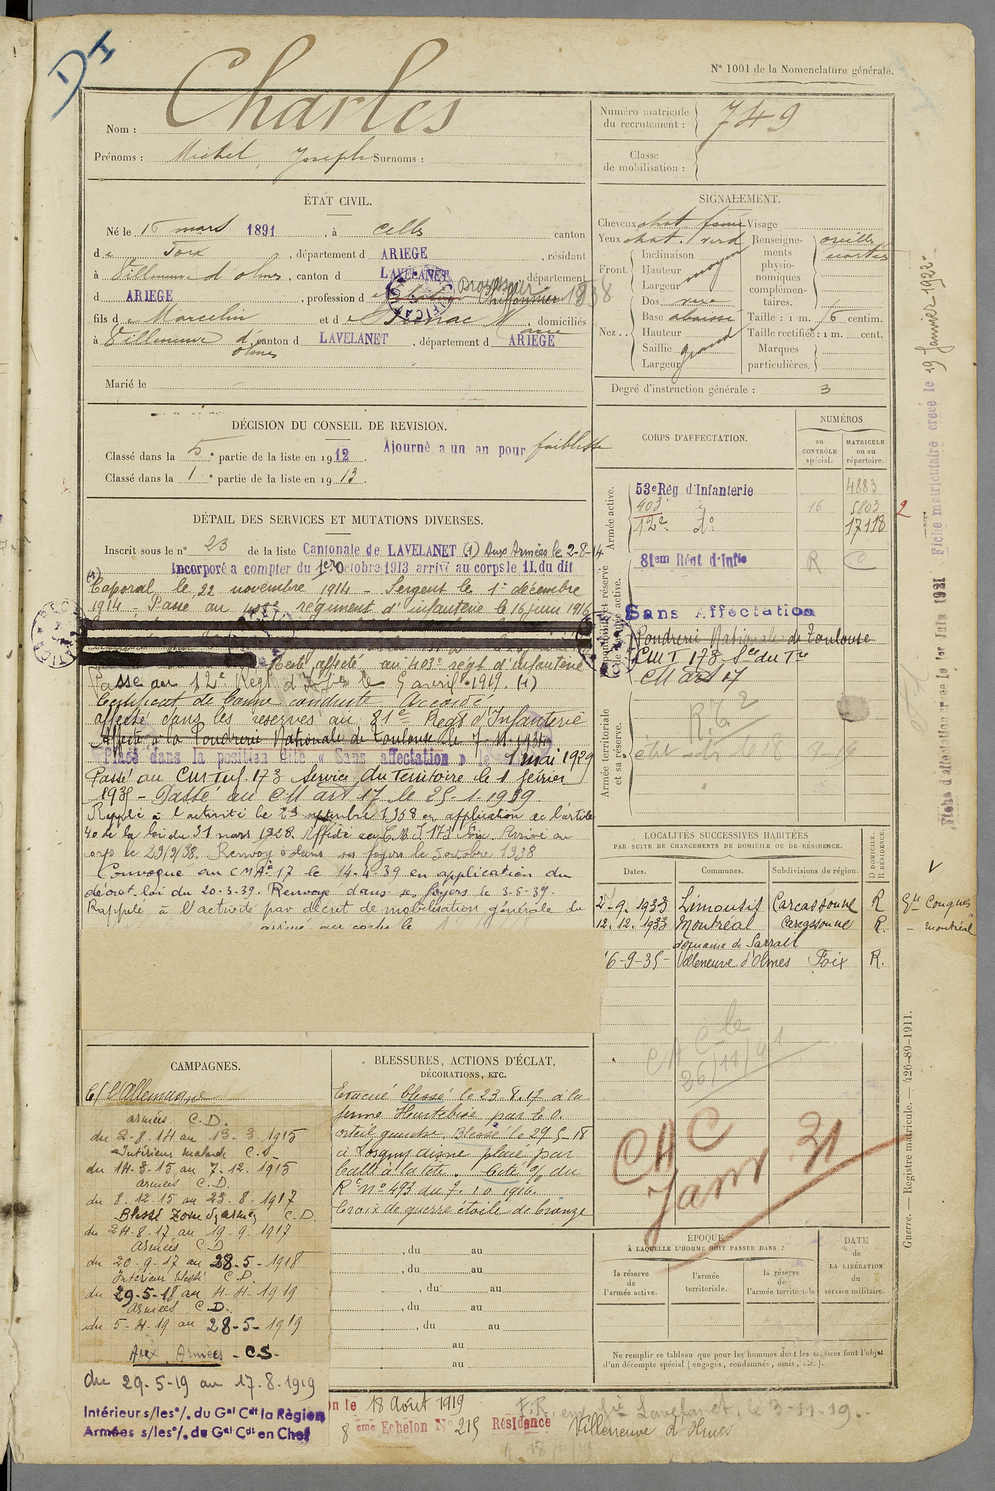 DI
N° 1001 de la Nomenclature générale.
Nom : Charles
Prénoms : Michel, Joseph Surnoms :
Numéro matricule du recrutement : 749
Classe de mobilisation :
ÉTAT CIVIL.
Né le 16 mars 1891, à Cells canton
de Foix, département d ARIEGE, résidant
à Villeneuve d'olmes, canton d LAVELANET département
d ARIEGE, profession d 1938
fils de Marcelin et de domiciliés
à Villeneuve d'olmes canton d LAVELANET, département d ARIEGE
Marié le
SIGNALEMENT.
Cheveux chat. foncé Visage
Yeux chat. verd Renseignements physionomiques complémentaires. oreilles écartées
Front. Inclinaison moyen
Hauteur
Largeur
Nez. Dos
Base abaissé
Hauteur
Saillie grand
Largeur
Taille : 1 m. centim.
Taille rectifiée : 1 m. cent.
Marques particulières.
Degré d'instruction générale : 3
DÉCISION DU CONSEIL DE REVISION.
Classé dans la 5e partie de la liste en 1912 Ajourné a un an pour faiblesse
Classé dans la 1e partie de la liste en 1913.
CORPS D'AFFECTATION.
NUMÉROS
AU CONTRÔLE spécial.
MATRICULE ou au répertoire.
Armée active.
53e Rég d'Infanterie 4883
403e 16 5803 2
12e do 17118
81em Régt d'Infie R
Sans Affectation
Poudrerie Nationale de Toulouse
CMT 173 Sce du Tre
CM Art 17
Armée territoriale et sa réserve.
DÉTAIL DES SERVICES ET MUTATIONS DIVERSES.
Inscrit sous le n° 23 de la liste Cantonale de LAVELANET (1) Aux Armées le 2-8-14
Incorporé a compter du 1er Octobre 1913 arrivé au corps le 11. du dit
Caporal le 22 novembre 1914 - Sergent le 1er décembre
1914 - Passé au 403e régiment d'infanterie le 16 juin 1916
Resté affecté au 403e régt d'infanterie
Passé au 12e Régt d'Inf.ie le 5 avril 1919. (1)
Certificat de bonne conduite Accordé
affecté dans les réserves au 81e Régt d'Infanterie
Affecté à la Poudrerie Nationale de Toulouse le
Placé dans la position dite « Sans affectation » le 1 mai 1929
Passé au CM Tuf. 173 Service du Territoire le 1 février
1935 - Passé au CM Art 17 le 25-1-1939
Rappelé à l'activité le septembre 1938 en application de l'article
40 de la loi du 31 mars 1928. Affecté au C.M.I 173 Foix. Arrivé au
corps le 29/9/38. Renvoyé dans ses foyers le 5 octobre 1938
Convoqué au CMA 17 le 14-4-39 en application du
décret-loi du 20-3-39. Renvoyé dans ses foyers le 3-5-39.
Rappelé à l'activité par décret de mobilisation générale du
LOCALITÉS SUCCESSIVES HABITÉES
PAR SUITE DE CHANGEMENTS DE DOMICILE OU DE RÉSIDENCE.
Dates. Communes. Subdivisions de région. D. DOMICILE. R. RÉSIDENCE.
2-9-1933 Limousis Carcassonne R Gie Conques
12.12.1933 Montréal Carcassonne R. - Montréal
domaine de Sarrall
6-9-35 Villeneuve d'Olmes Foix R.
26/11/41
CAC
Janv. 31
CAMPAGNES.
C/ l'Allemagne
armées C.D.
du 2-8-14 au 13-3-1915
Intérieur malade C.S.
du 14-3-15 au 7-12-1915
armées C.D.
du 8.12.15 au 23.8.1917
Blessé Zone d'armées C.D.
du 24-8-17 au 19-9-1917
Armées C.D.
du 20-9-17 au 28-5-1918
Intérieur blessé C.D.
du 29-5-18 au 4-4-1919
Armées C.D.
du 5-4-19 au 28-5-1919
Aux Armées - C.S.
du 29-5-19 au 17.8.1919
Intérieur s/les o/. du Gal Cdt la Région
Armées s/les o/. du Gal Cdt en Chef
BLESSURES, ACTIONS D'ÉCLAT,
DÉCORATIONS, ETC.
Evacué blessé le 23.8.17 à la
ferme Heurtebise par E.O.
orteil gauche. Blessé le 29-5-18
à Loigny Aisne plaie par
balle à la tête. Cité o/ du
Rgt n° 493 du 7.10.1916.
Croix de guerre étoile de bronze
, du au
, du au
, du au
, du au
, du au
au
au
ÉPOQUE
À LAQUELLE L'HOMME DOIT PASSER DANS :
la réserve de l'armée active.
l'armée territoriale.
la réserve de l'armée territoriale
DATE de LA LIBÉRATION du service militaire.
Ne remplir ce tableau que pour les hommes dont les services font l'objet
d'un décompte spécial (engagés, condamnés, omis, etc.).
Guerre. — Registre matricule. — 426-89-1911.
Fiche matriculaire créée le 19 Janvier 1922
Fiche d'affectation créée le 1er Juin 1921
on le 18 Août 1919
8 eme Echelon N° 215 Résidence Villeneuve d'Olmes
Lavelanet, le 3-11-19